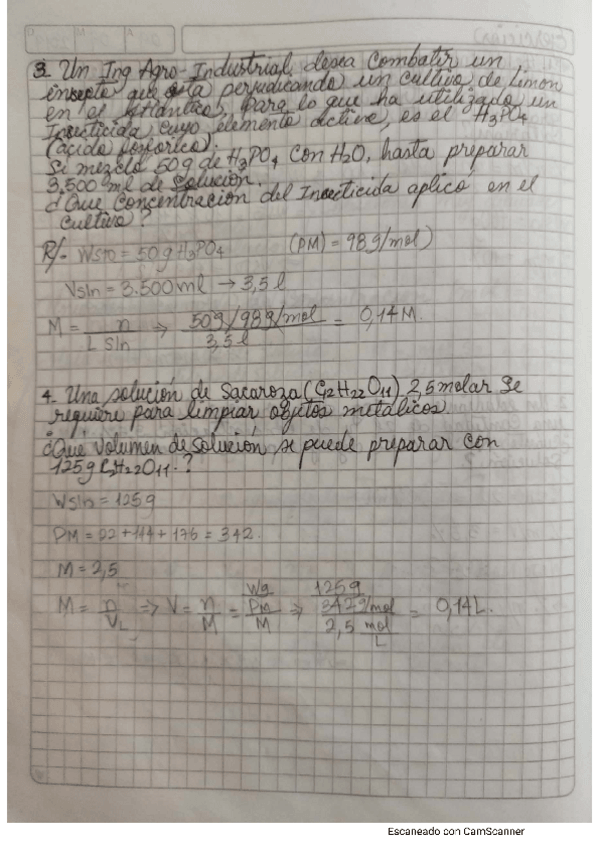 3. Un Ing Agro-Industrial, desea Combatir un
insepto que esta perjudicando un cultivo de Limon
en el Atlantico, para lo que ha utilizado un
Insecticida cuyo elemento active, es el H3PO4
(ácido fosforico).
Si mezcló 50g de H3PO4 con H2O, hasta preparar
3.500 ml de Solución.
¿Que Concentración del Insecticida aplicó en el
Cultivo?
R/- Wsto = 50g H3PO4 (PM) = 98g/mol)
Vsln = 3.500ml → 3,5 l
M = n / L Sln ⇒ 50g/98g/mol / 3,5 l = 0,14 M.
4. Una solución de Sacaroza (C12H22O11) 2,5 molar Se
requiere para limpiar objetos metálicos
¿Qué Volumen de Solución se puede preparar con
125g C12H22O11.?
Wsln = 125g
PM = 22+144+176 = 342.
M = 2,5
M = n / VL ⇒ V = n / M = Wg / Pm / M ⇒ 125g / 342g/mol / 2,5 mol / L = 0,14L.
Escaneado con CamScanner